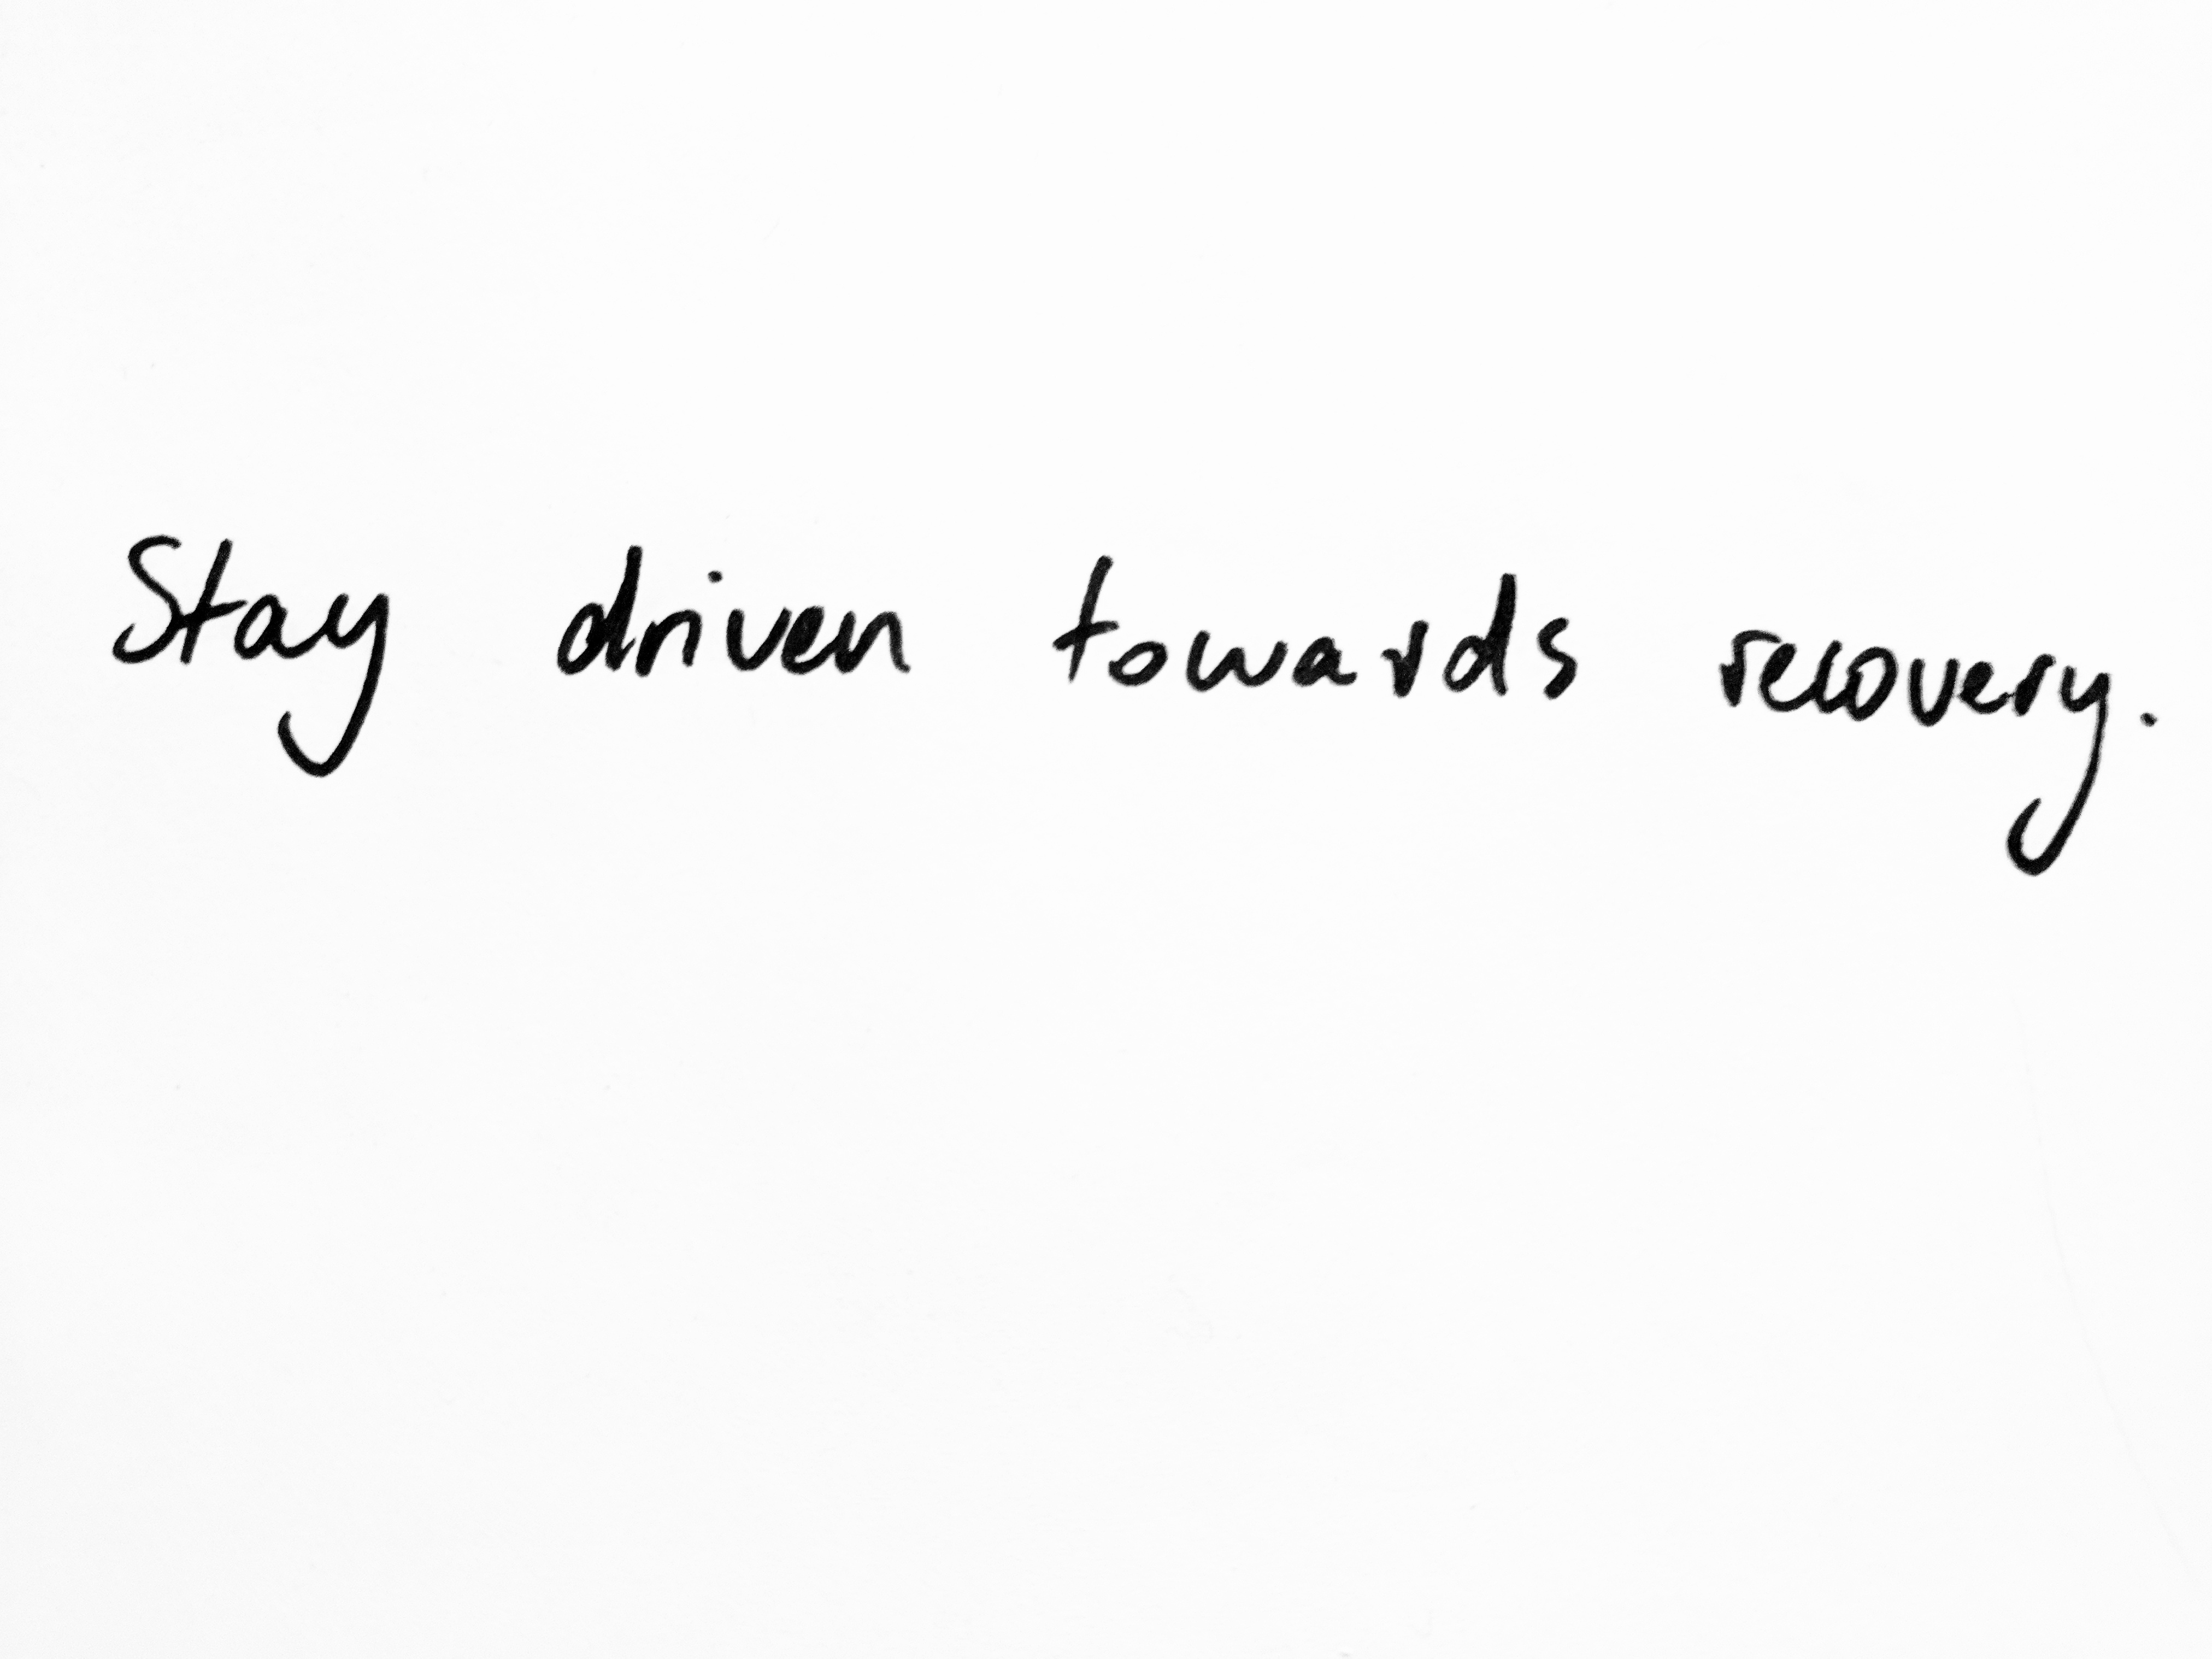 Stay driven towards recovery.